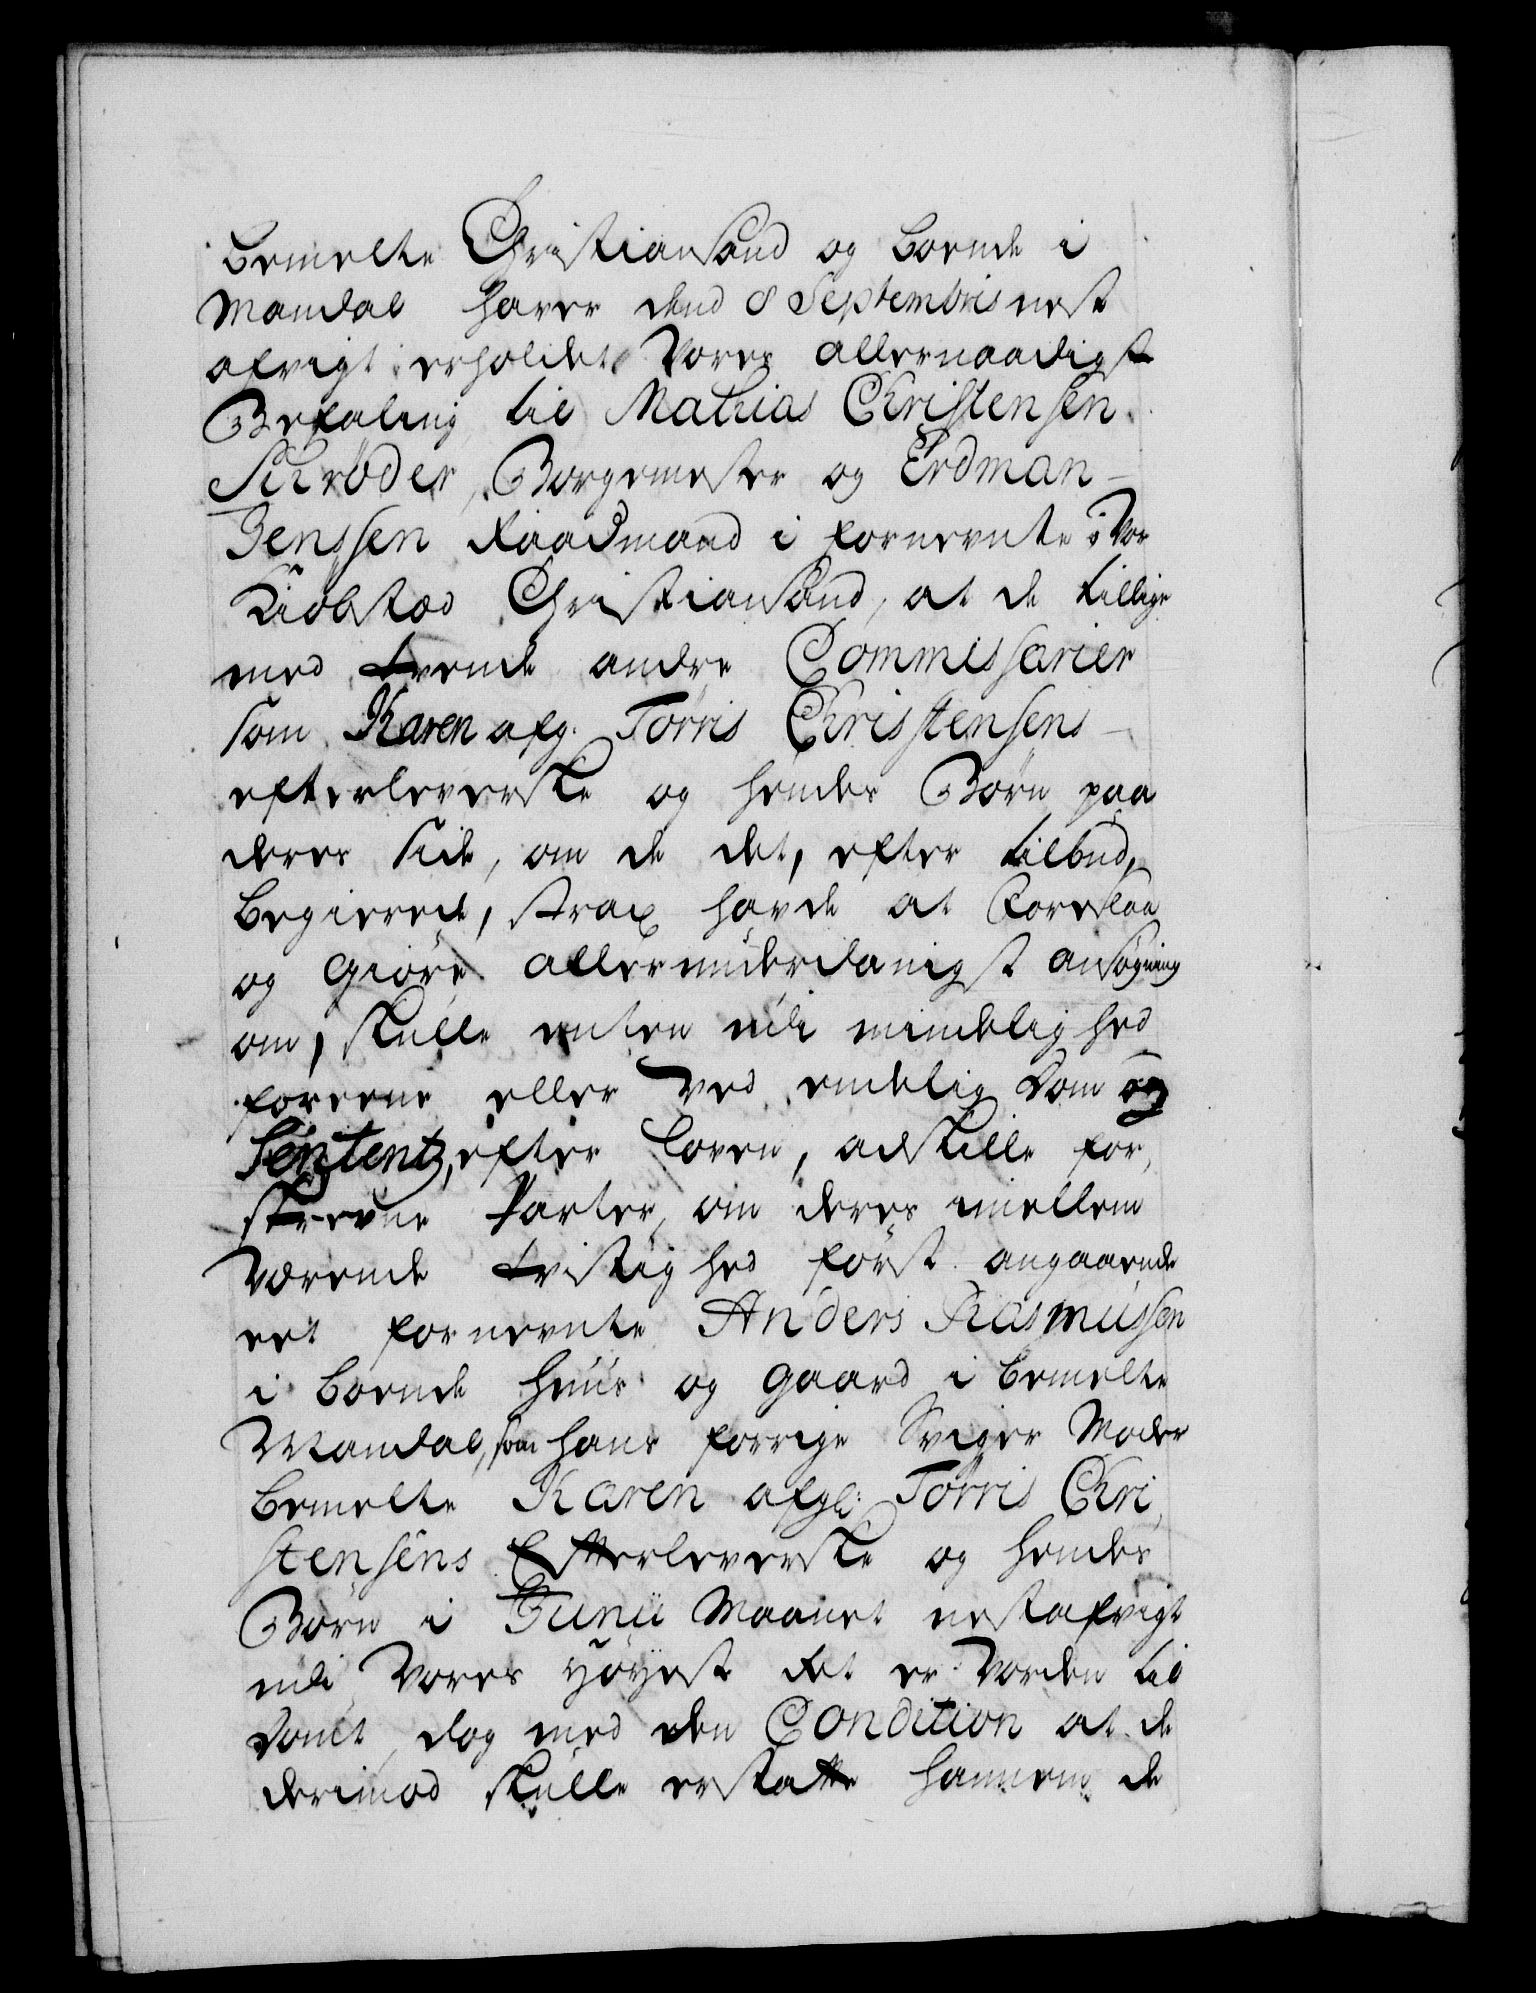 bemelte Christiansand og boende i
Mandal haver dend 8 Septembris nest
afvigt erholdet Vores allernaadigst
Befaling til Mathias Christensen
Schrøder, Borgemester og Erdman
Jenssen Raadmand i fornevnte Vor
Kiøbsted Christiansand, at de tillige
med tvende andre Commissarier
som Karen afg: Torris Christensens
efterleverske og hendes Børn paa
deres side, om de det, efter tilbud,
begierede, strax hafde at foreslaa
og giøre allerunderdanigst ansøgning
om, skulle enten udi mindelighed
foreene eller ved endelig Dom og
Sententz, efter Loven, adskille for,
skrevne Parter, om deres imellem
værende tvistighed først angaaende
eet fornevnte Anders Rasmussen
i boende Huus og gaard i bemelte
Mandal, som hans forrige Sviger Moder
bemelte Karen afgl: Torris Chri,
stensens Efterleverske og hendes
Børn i Junii Maanet nestafvigt
udi Vores Høyeste Ret er vorden til
dømt, dog med den Condition at de
derimod skulle erstatte hannem de